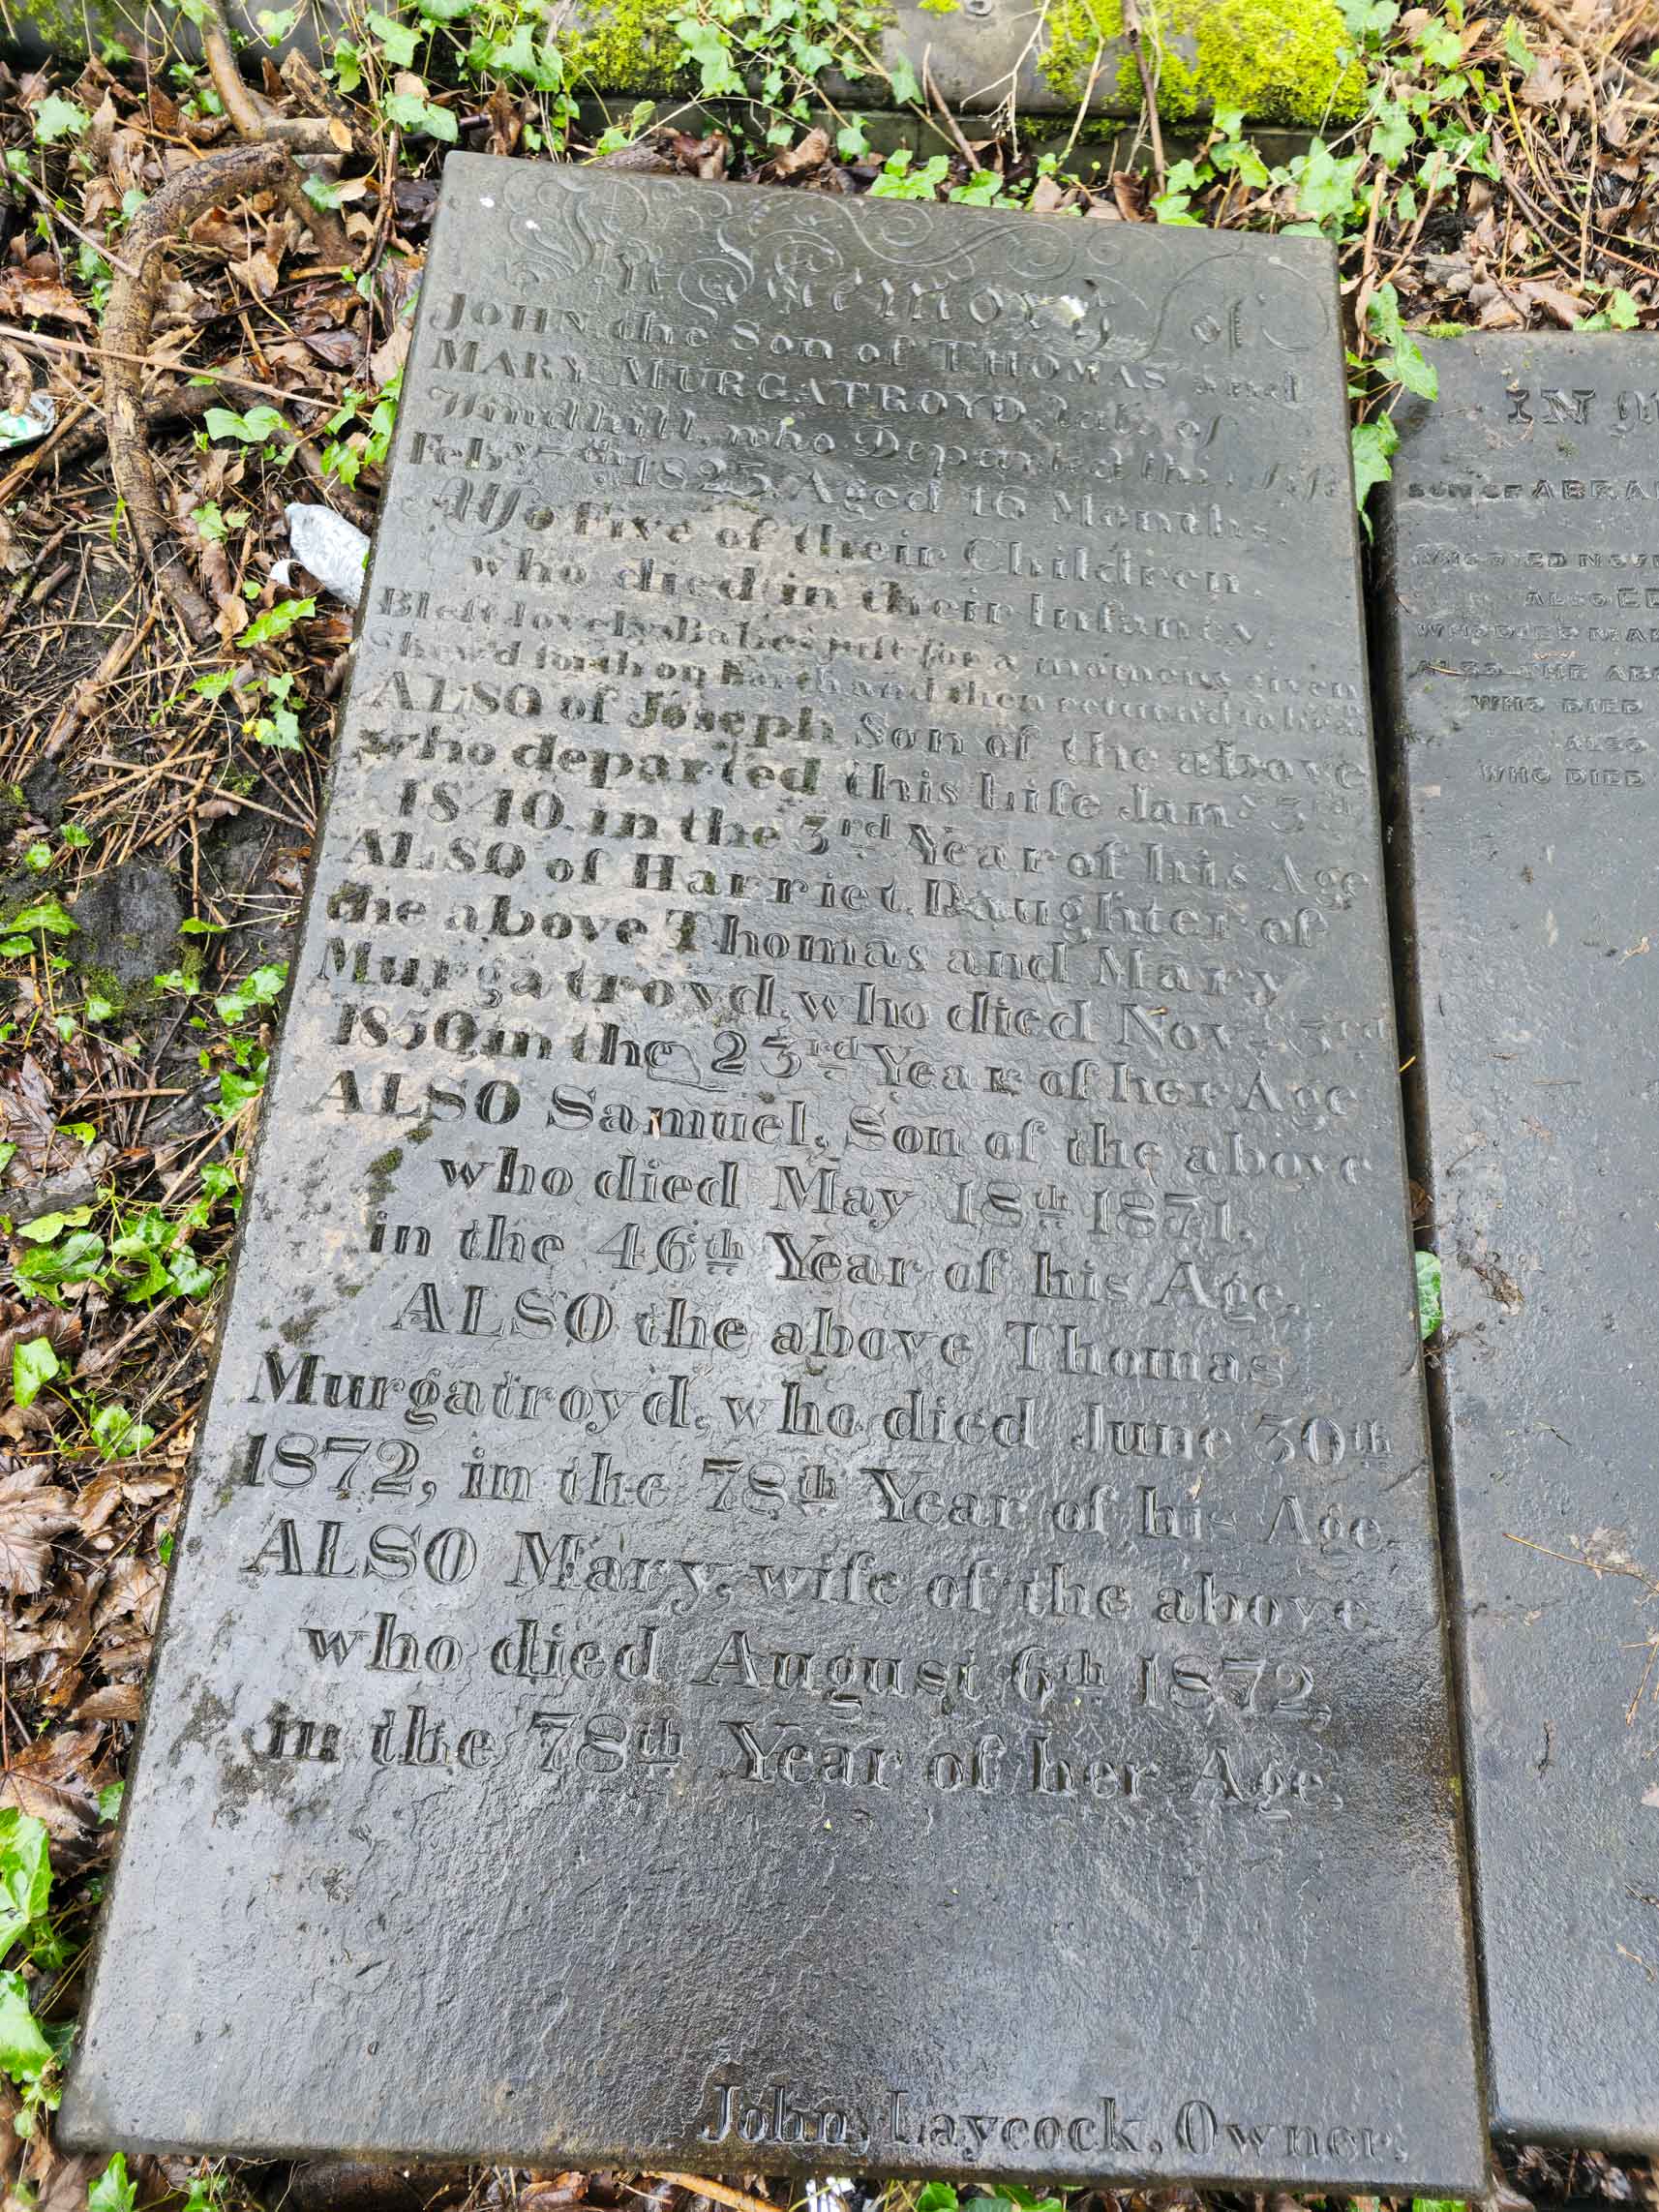 In Memory of
JOHN, the Son of THOMAS and
MARY MURGATROYD, late of
Windhill, who Departed this Life
Feby 1825, Aged 16 Months.
Also Five of their Children,
who died in their Infancy.
Blest lovely Babes just for a moment given
Shew'd forth on Earth and then return'd to
ALSO of Joseph Son of the above
who departed this Life Jany 3rd
1840 in the 3rd Year of his Age
ALSO of Harriet, Daughter of
the above Thomas and Mary
Murgatroyd, who died Nov 3rd
1850, in the 23rd Year of her Age
ALSO Samuel, Son of the above
who died May 18th 1871,
in the 46th Year of his Age.
ALSO the above Thomas
Murgatroyd, who died June 30th
1872, in the 78th Year of his Age.
ALSO Mary, wife of the above
who died August 6th 1872,
in the 78th Year of her Age.
John, Laycock, Owner,
IN
SON OF
WHO DIED
ALSO
WHO DIED
ALSO THE
WHO DIED
ALSO
WHO DIED